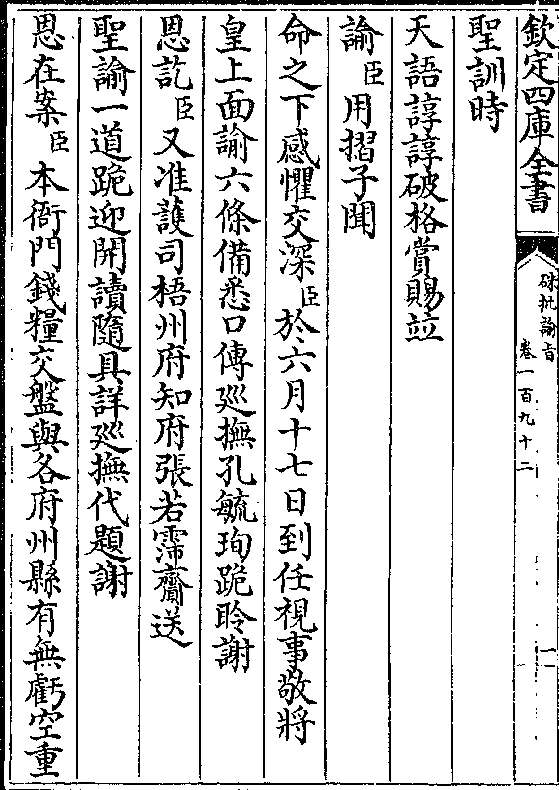 欽定四庫全書
硃批諭旨
卷一百九十二
聖訓時
天語諄諄破格賞賜竝
諭臣用摺子聞
命之下感懼交深臣於六月十七日到任視事敬將
皇上面諭六條備悉口傳巡撫孔毓珣跪聆謝
恩訖臣又准護司梧州府知府張若霈齎送
聖諭一道跪迎開讀隨具詳巡撫代題謝
恩在案臣本衙門錢糧交盤與各府州縣有無虧空重